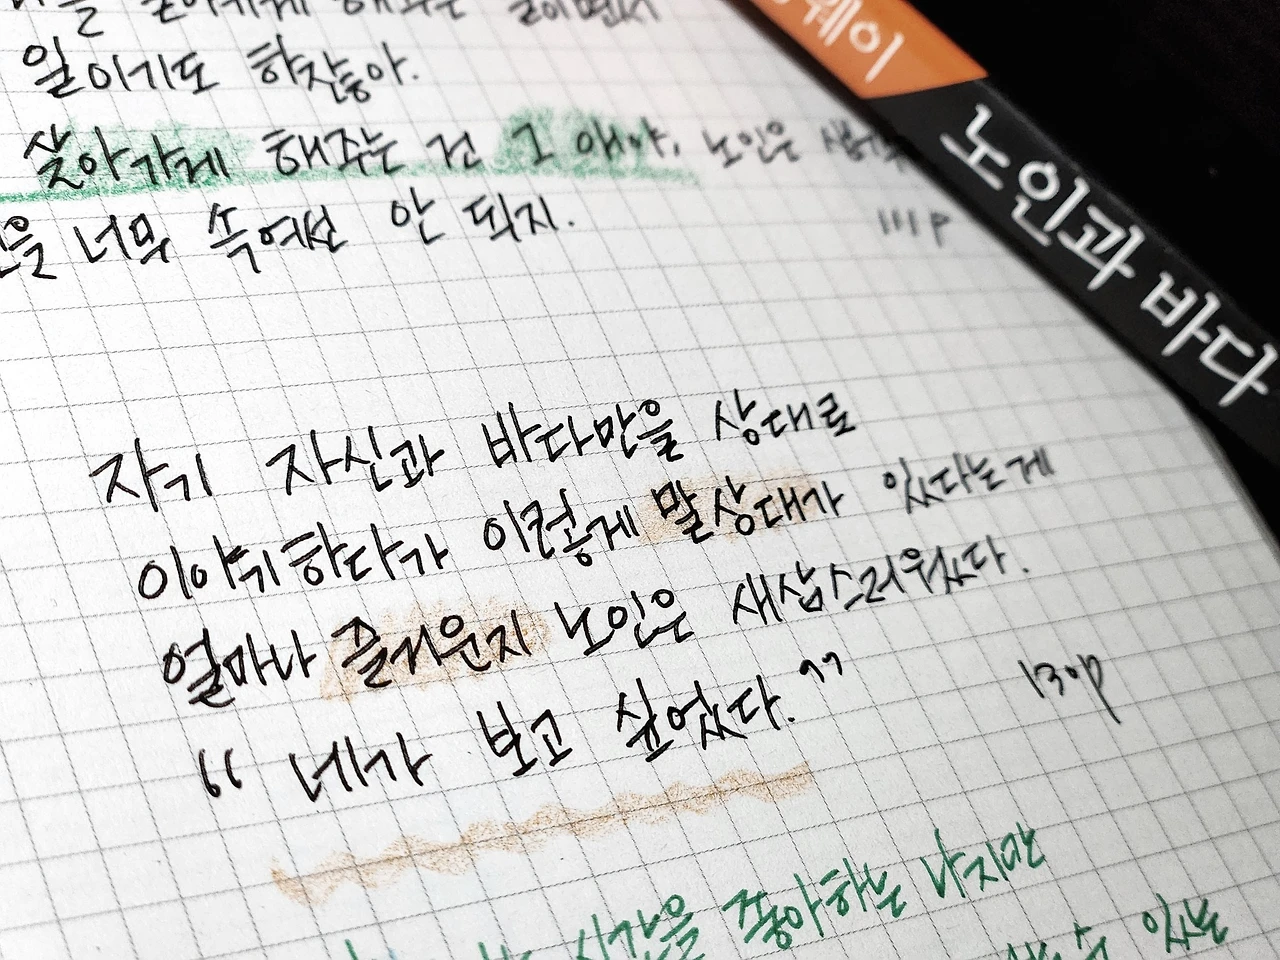 일이기도 하잖아.
살아가게 해주는 건 그 애야. 노인은
너무 속여선 안 되지.
111p
자기 자신과 바다만을 상대로
이야기하다가 이렇게 말상대가 있다는게
얼마나 즐거운지 노인은 새삼스러웠다.
“네가 보고 싶었다.”
130p
시간을 좋아하는 나지만
있는
웨이
노인과 바다